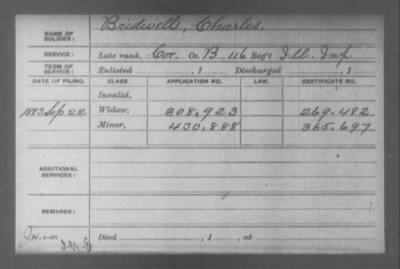 NAME OF SOLDIER: Bridwell, Charles.
SERVICE: Late rank, Cor. Co. B, 116 Reg't Ill. Inf.
TERM OF SERVICE: Enlisted , 1 Discharged , 1
DATE OF FILING. CLASS APPLICATION NO. LAW. CERTIFICATE NO.
Invalid,
1883 Sep 22 Widow, 308,923 269,482
Minor, 430,888 365,697
ADDITIONAL SERVICES:
REMARKS:
Died , 1 , at